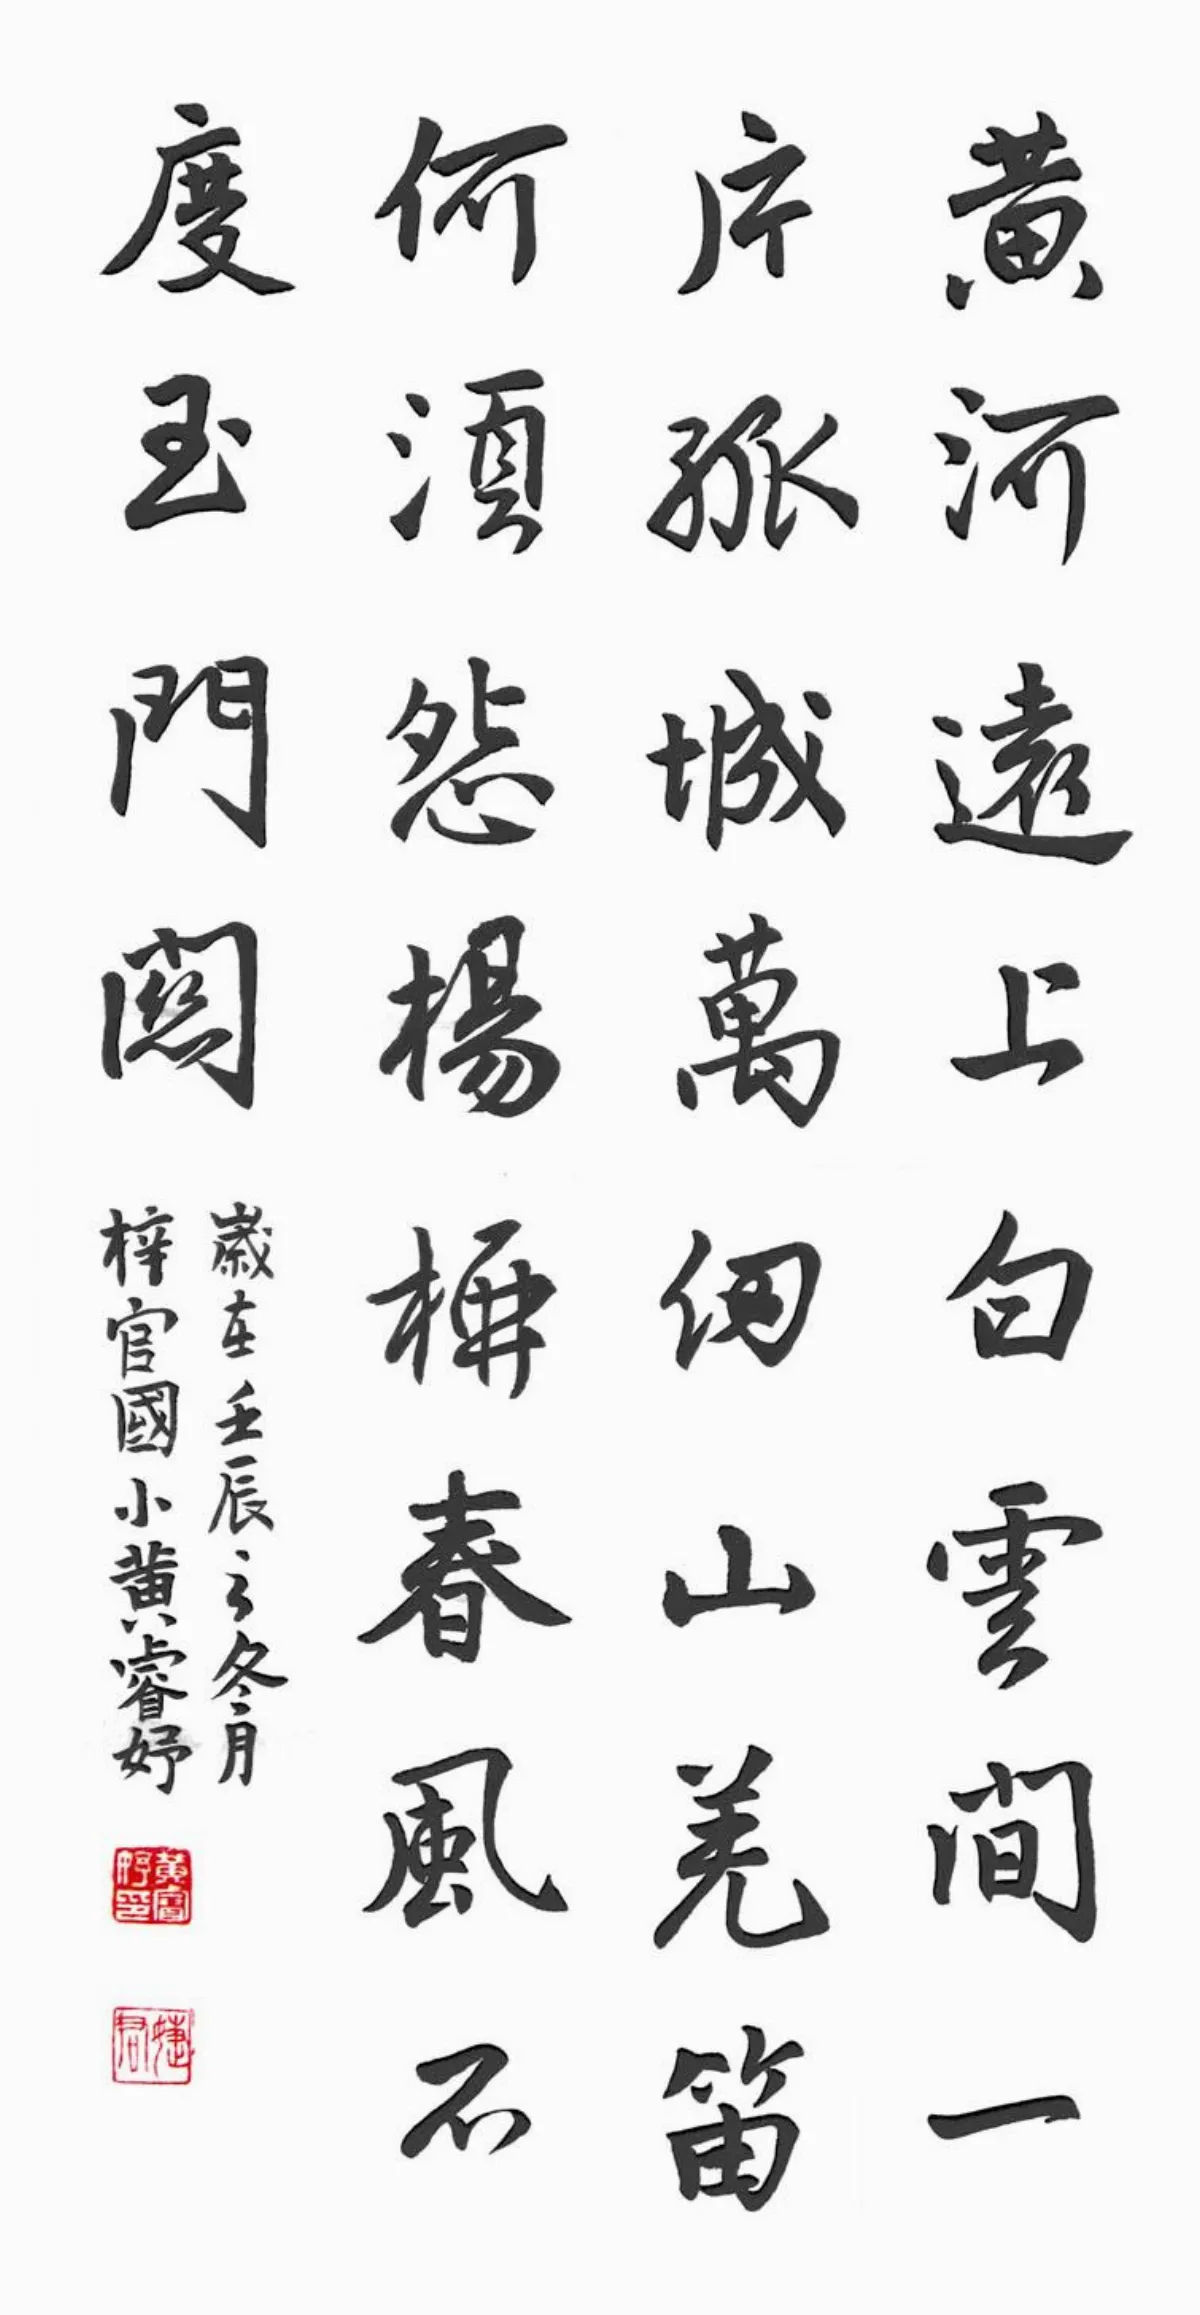 黃河遠上白雲間一
片孤城萬仞山羌笛
何須怨楊柳春風不
度玉門關
歲在壬辰之冬月
梓官國小黃睿妤
黃睿妤印